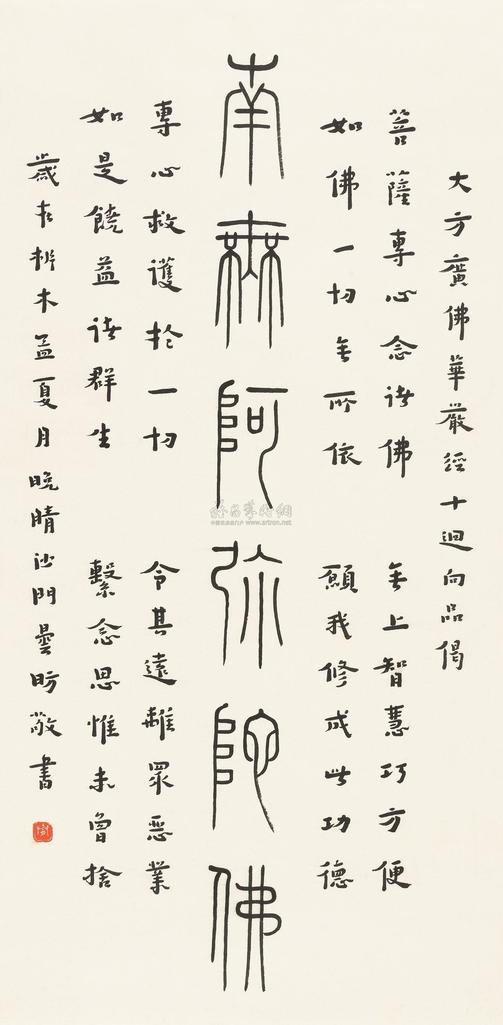 大方廣佛華嚴經十迴向品偈
菩薩專心念諸佛　無上智慧巧方便
如佛一切無所依　願我修成此功德
南無阿弥陀佛
專心救護於一切　令其遠離眾惡業
如是饒益諸群生　繫念思惟未曾捨
歲在析木孟夏月晚晴沙門曇昉敬書
雅昌藝術網
www.artron.net